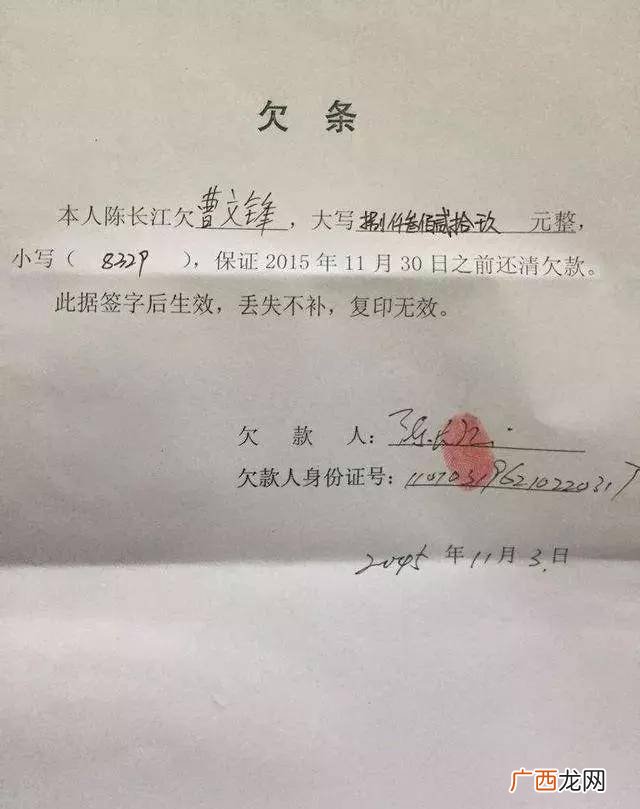 欠 条
本人陈长江欠曹文锋，大写捌仟叁佰贰拾玖 元整，
小写（ 8329 ），保证 2015 年 11 月 30 日之前还清欠款。
此据签字后生效，丢失不补，复印无效。
欠 款 人：陈长江
欠款人身份证号：
2015 年 11 月 3 日
广西龙网